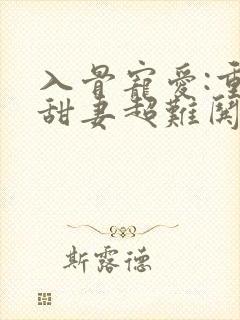 入骨寵愛:重
甜妻超難関
斯露德